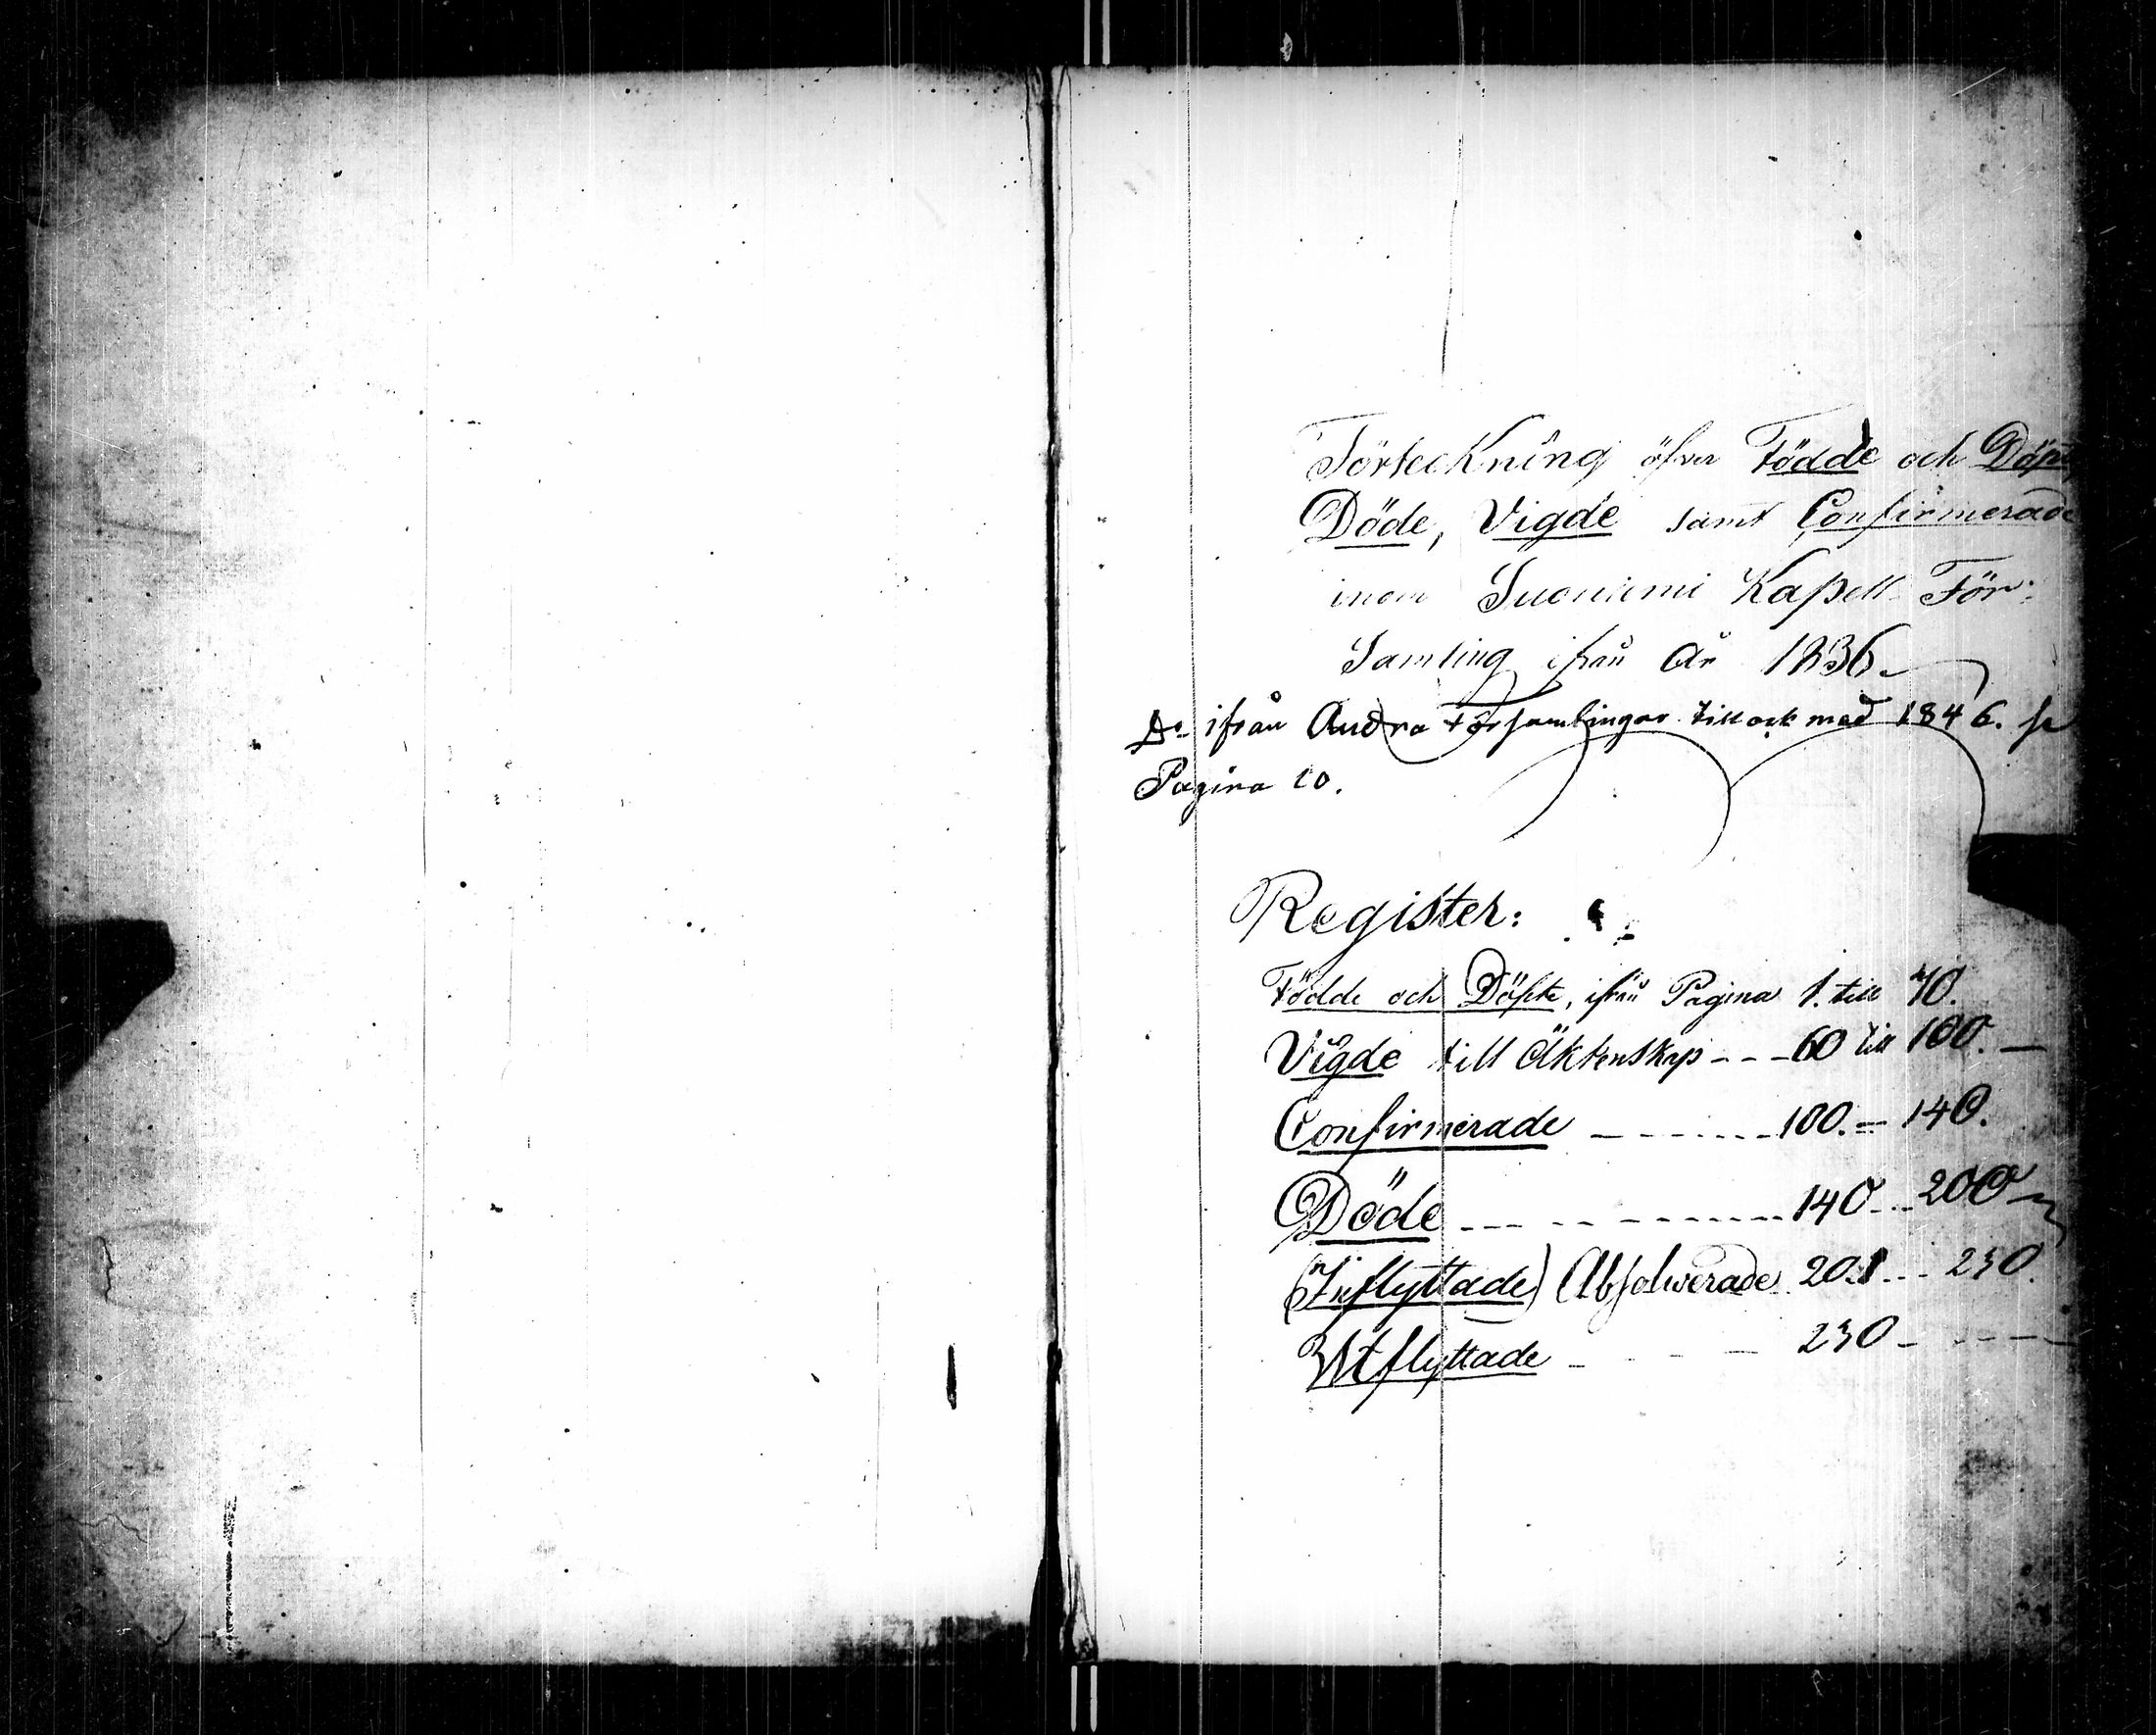 Förteckning öfver Födde och Döpte,
Döde, Vigde samt Confirmerade
inom Suoniemi Kapell För:
Samling ifrån År 1836.
Do ifrån Andra Församlingar till ock med 1846. se
Pagina 10.
Register:
Födde och Döpte, ifrån Pagina 1. till 40.
Vigde till Äktenskap - - - 60 till 100. —
Confirmerade - - - - - - - 100. = 140.
Döde - - - - - - - - - - - 140 - - - 200
(Inflyttade) Absolwerade 201 - - - 230.
Utflyttade - - - - 230 - - - - -